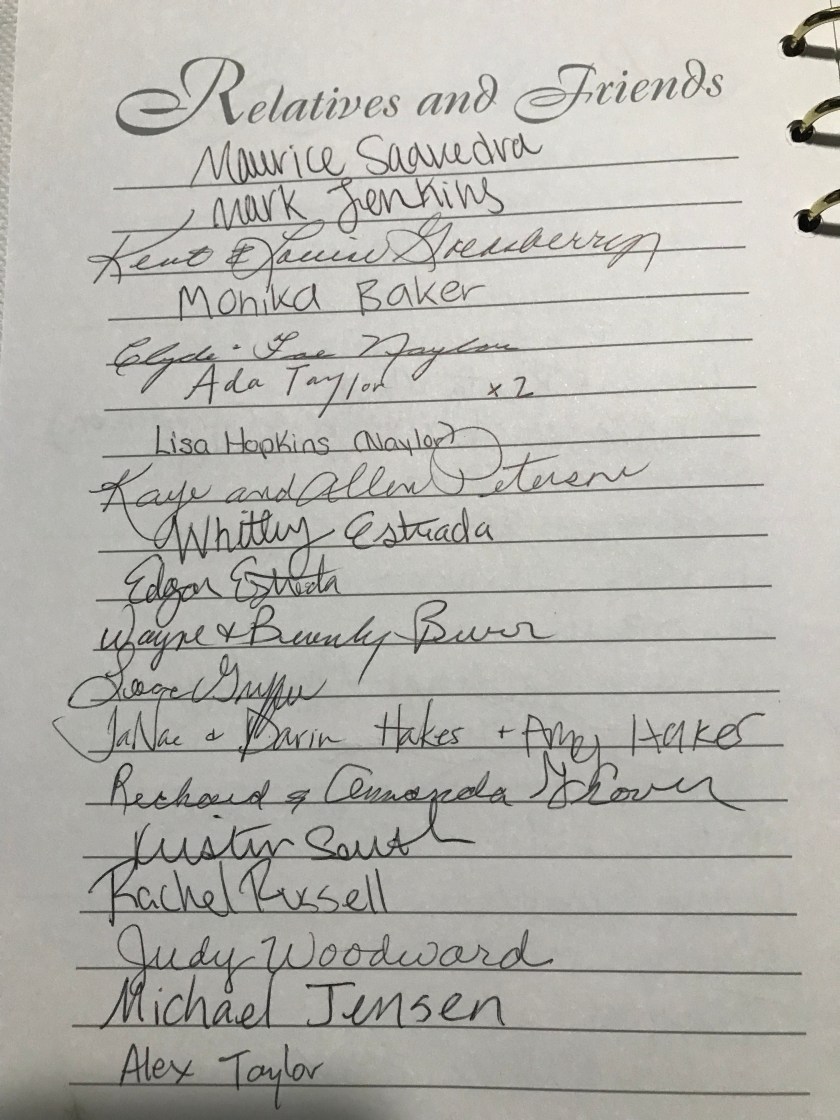 Relatives and Friends
Maurice Saavedra
Mark Jenkins
Kent & Louise
Monika Baker
Clyde Naylor
Ada Taylor x2
Lisa Hopkins (Naylor)
Kaye and Allen Peterson
Whitley Estrada
Edgar Estrada
Wayne & Beverly Burr
JaNae & Darin Hakes + Amy Hakes
Richard & Amanda
Kristin South
Rachel Russell
Judy Woodward
Michael Jensen
Alex Taylor